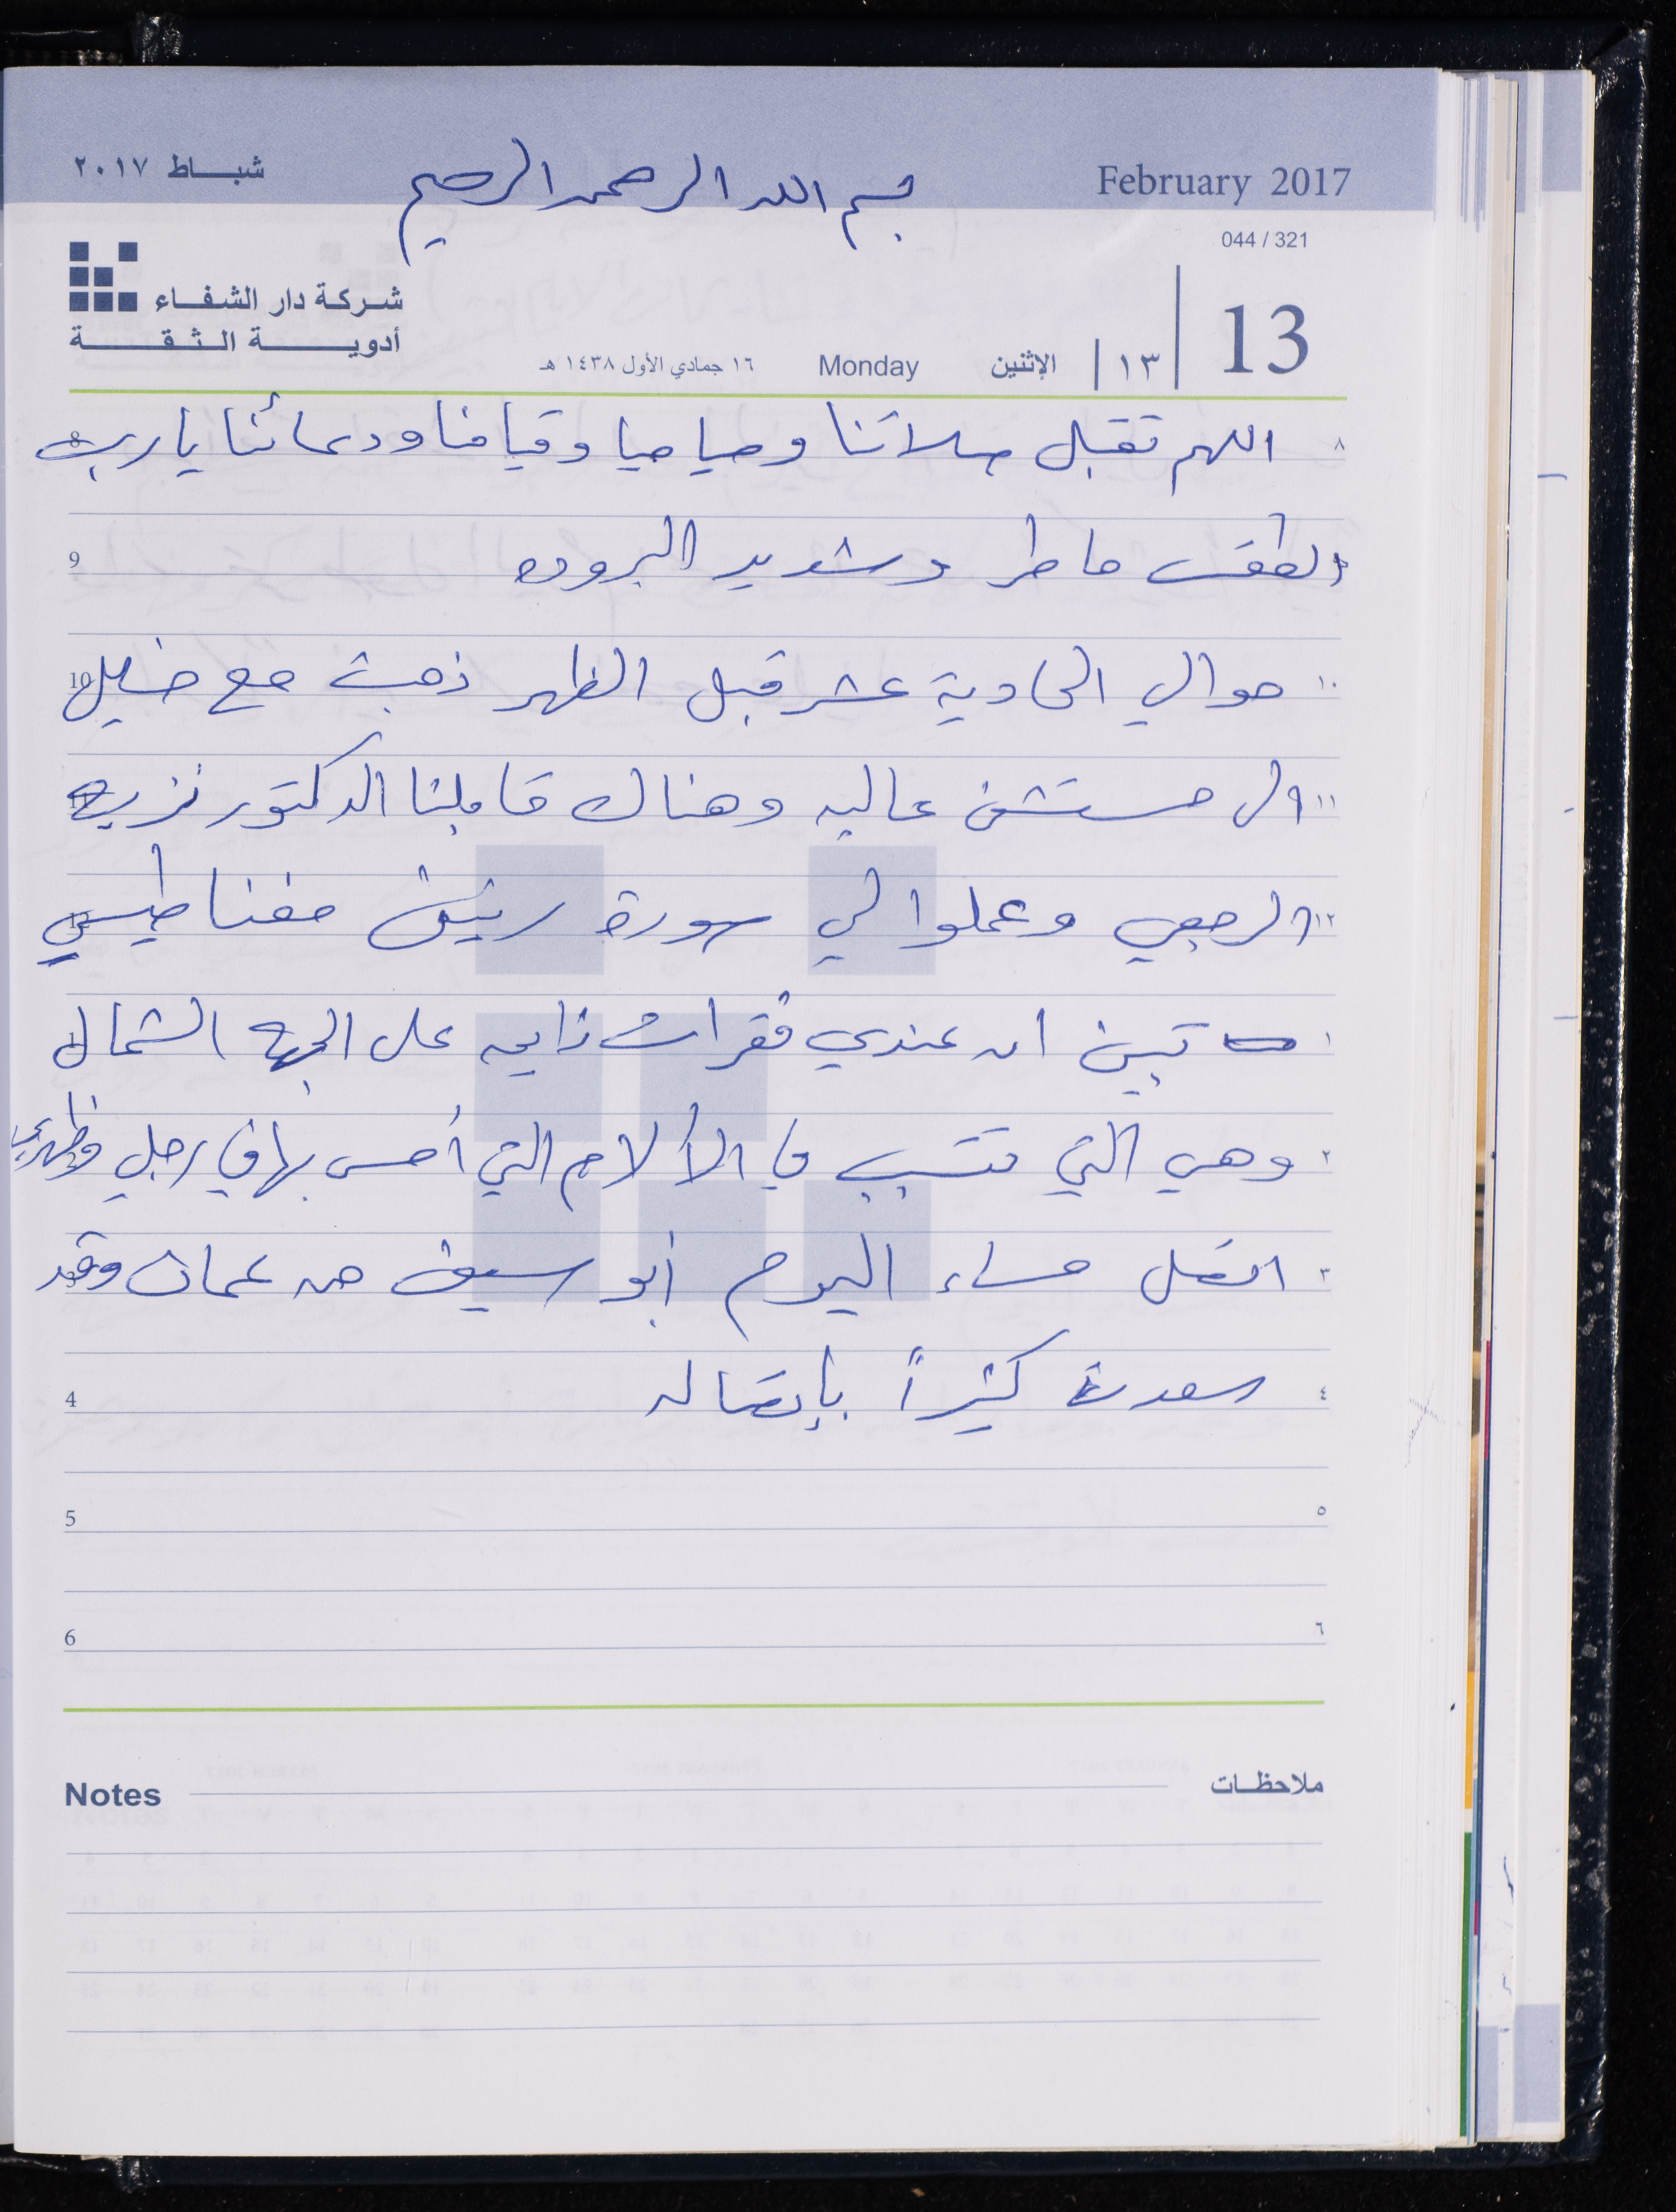 شباط ٢٠١٧
بسم الله الرحمن الرحيم
February 2017
044 / 321
شركة دار الشفاء
أدوية الثقة
13
١٣
الإثنين
Monday
١٦ جمادي الأول ١٤٣٨ هـ
٨ اللهم تقبل صلاتنا وصيامنا وقيامنا ودعائنا يا رب 8
9 الطقس ماطر وشديد البروده 9
١٠ حوالي الحادية عشر قبل الظهر ذهبت مع خليل 10
١١ الى مستشفى عاليه وهناك قابلنا الدكتور نزيه
١٢ الرجبي وعملوا لي صورة رنين مغناطيسي
١ تبين ان عندي فقرات على الجهه الشمال
٢ وهي التي تتسبب في الألام التي أحس بها في رجلي وظهري
٣ اتصل مساء اليوم أبو سيف من عمان وقد
٤ سعدت كثيراً بإتصاله 4
٥ 5
٦ 6
Notes ملاحظات